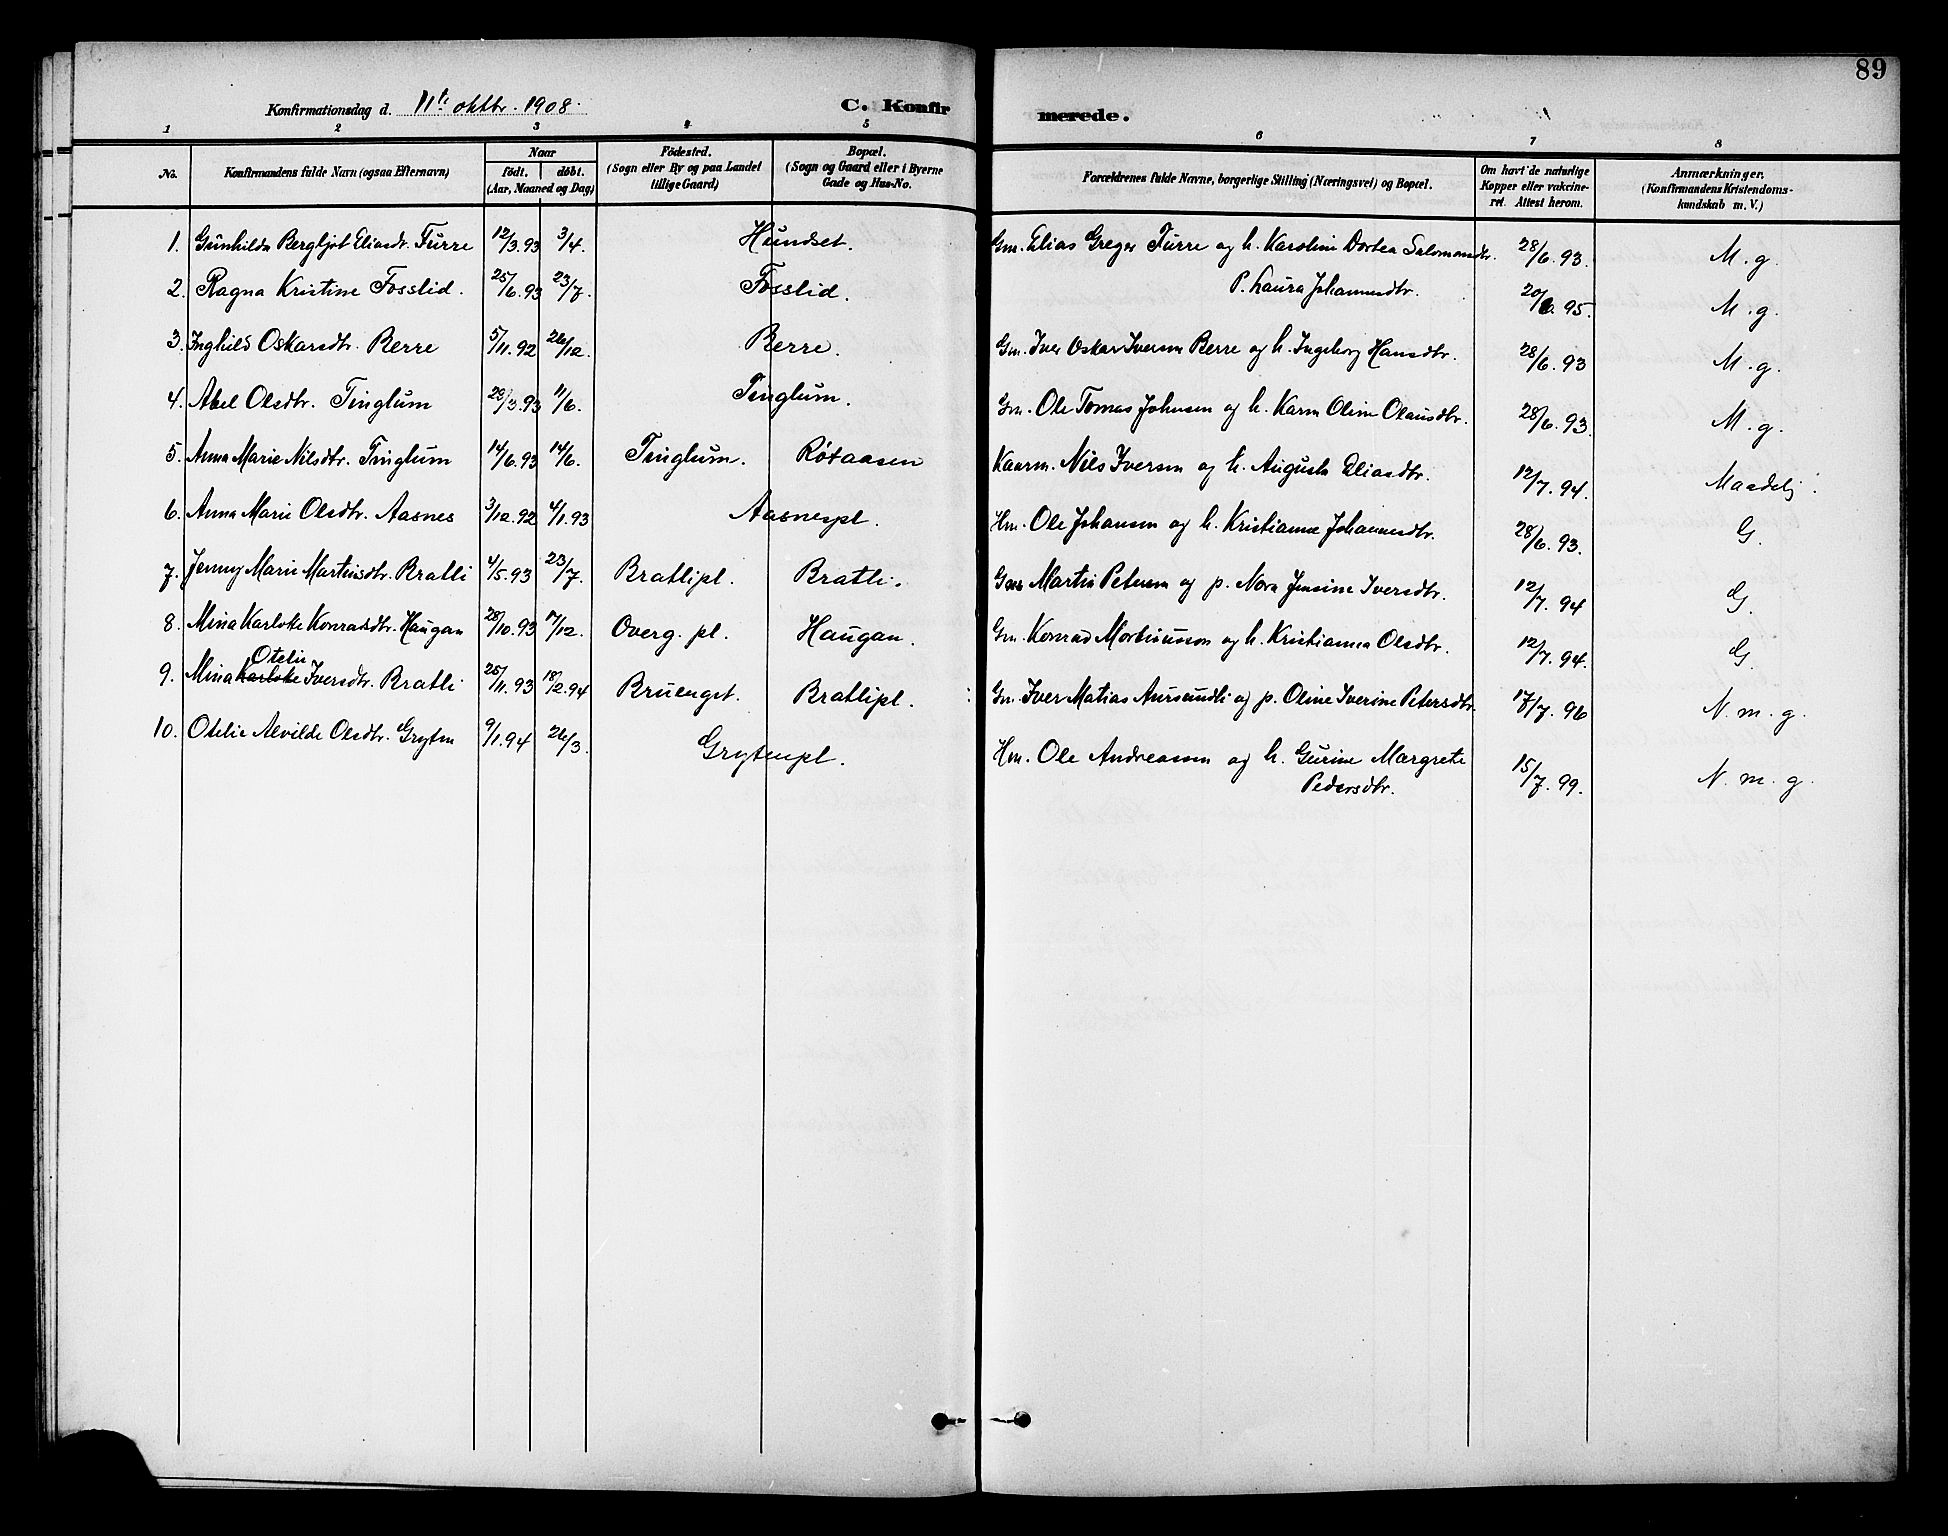 89
Konfirmationsdag d. 11te oktbr. 1908. C. Konfirmerede.
1 2 3 4 5 6 7 8
No. Konfirmandens fulde Navn (ogsaa Efternavn) Naar födt. döbt. (Aar, Maaned og Dag) Födested. (Sogn eller By og paa Landet tillige Gaard) Bopæl. (Sogn og Gaard eller i Byerne Gade og Hus-No. Forældrenes fulde Navne, borgerlige Stilling (Næringsvei) og Bopæl. Om havt de naturlige Kopper eller vakcineret. Attest herom. Anmærkninger. (Konfirmandens Kristendomskundskab m. V.)
1. Gunhilda Bergljot Eliasdr. Furre 12/3.93 3/4. Hundset. Gm. Elias Greger Furre og h. Karoline Dortea Salomonsdtr. 28/6.93. M.g.
2. Ragna Kristine Fosslid. 25/6.93 23/7. Fosslid. P. Laura Johannesdtr. 20/6.95. M.g.
3. Inghild Oskarsdtr. Berre 5/11.92 26/12. Berre. Gm. Iver Oskar Iversen Berre og h. Ingeborg Hansdtr. 28/6.93 M.g.
4. Abel Olsdtr. Tinglum 29/3.93 11/6. Tinglum. Gm. Ole Tomas Johnsen og h. Karen Oline Olausdtr. 28/6.93. M.g.
5. Anna Marie Nilsdtr. Tinglum 14/6.93 14/6. Tinglum. Røtaasen Kaarm. Nils Iversen og h. Augusta Eliasdtr. 12/7.94. Maadelig.
6. Anna Marie Olsdtr. Aasnes 3/12.92 4/1.93 Aasnespl. Hm. Ole Johansen og h. Kristianna Johannesdtr. 28/6.93. G.
7. Jenny Marie Martinsdtr. Bratli 4/5.93 23/7. Bratlipl. Bratli. Martin Petersen og p. Nora Jensine Iversdtr. 12/7.94 G.
8. Mina Karlotte Konradsdtr. Haugan 28/10.93 17/12. Overg. pl. Haugan. Gm. Konrad Mortinusson og h. Kristianna Olsdtr. 12/7.94. G.
Otelie
9. Mina Karlotte Iversdtr. Bratli 25/11.93 18/2.94 Bruenget. Bratlipl. Gm. Iver Matias Aursundli og p. Oline Iverine Petersdtr. 17/7.96 N.m.g.
10. Otelie Alvilde Olsdtr. Gryten 9/1.94 26/3. Grytenpl. Hm. Ole Andreassen og h. Gurine Margrete
Pedersdtr. 15/7.99. N.m.g.